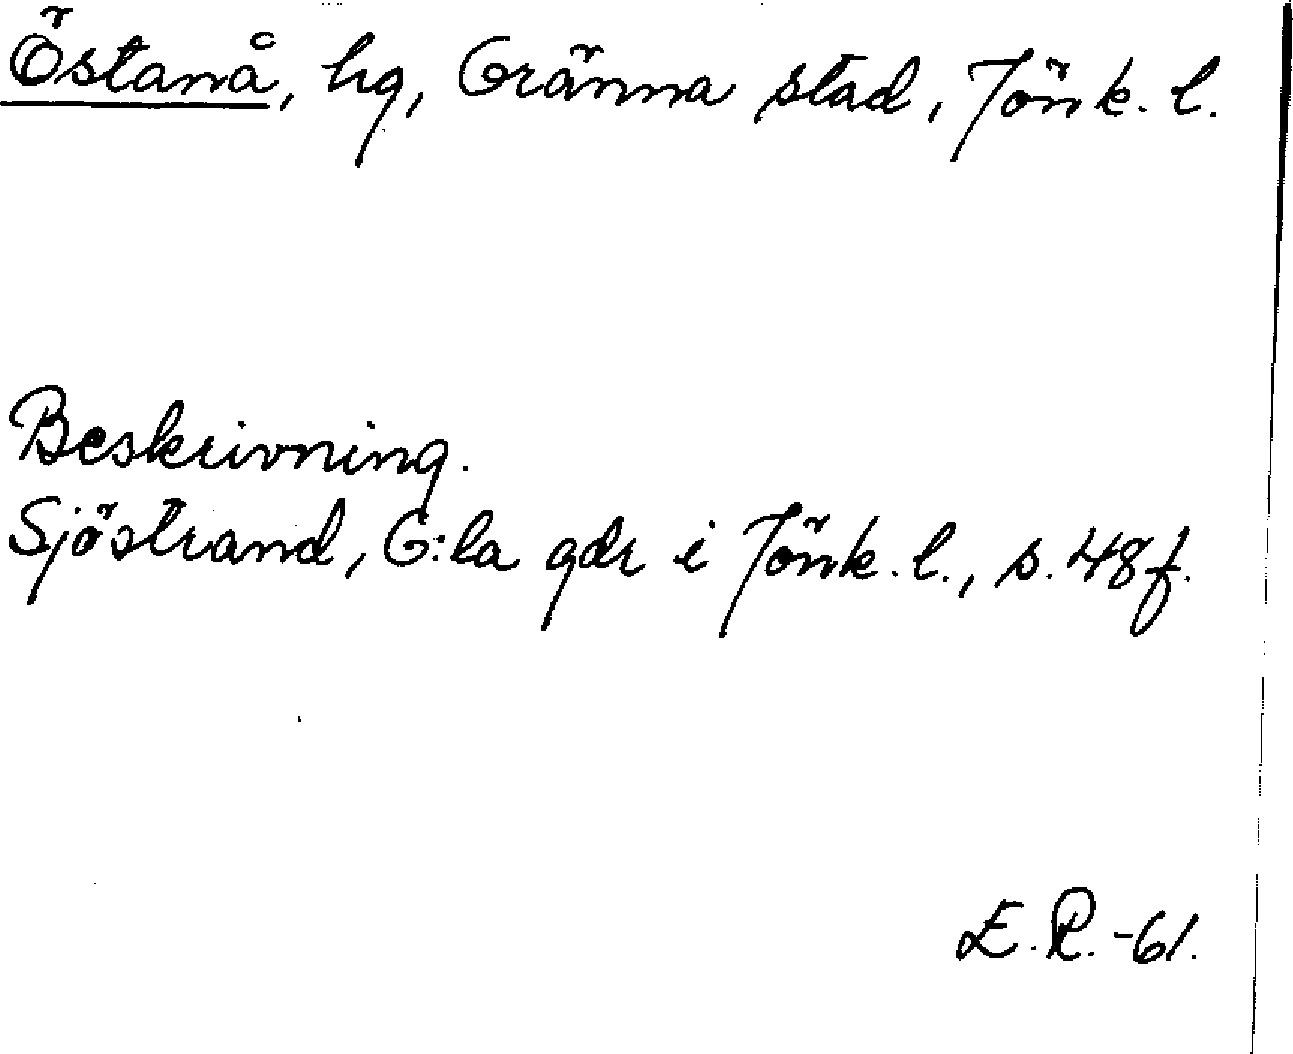 Östanå, hg, Gränna stad, Jönk. l.
Beskrivning.
Sjöstrand, G:la gdr i Jönk. l., s. 48 f.
E. R. -61.